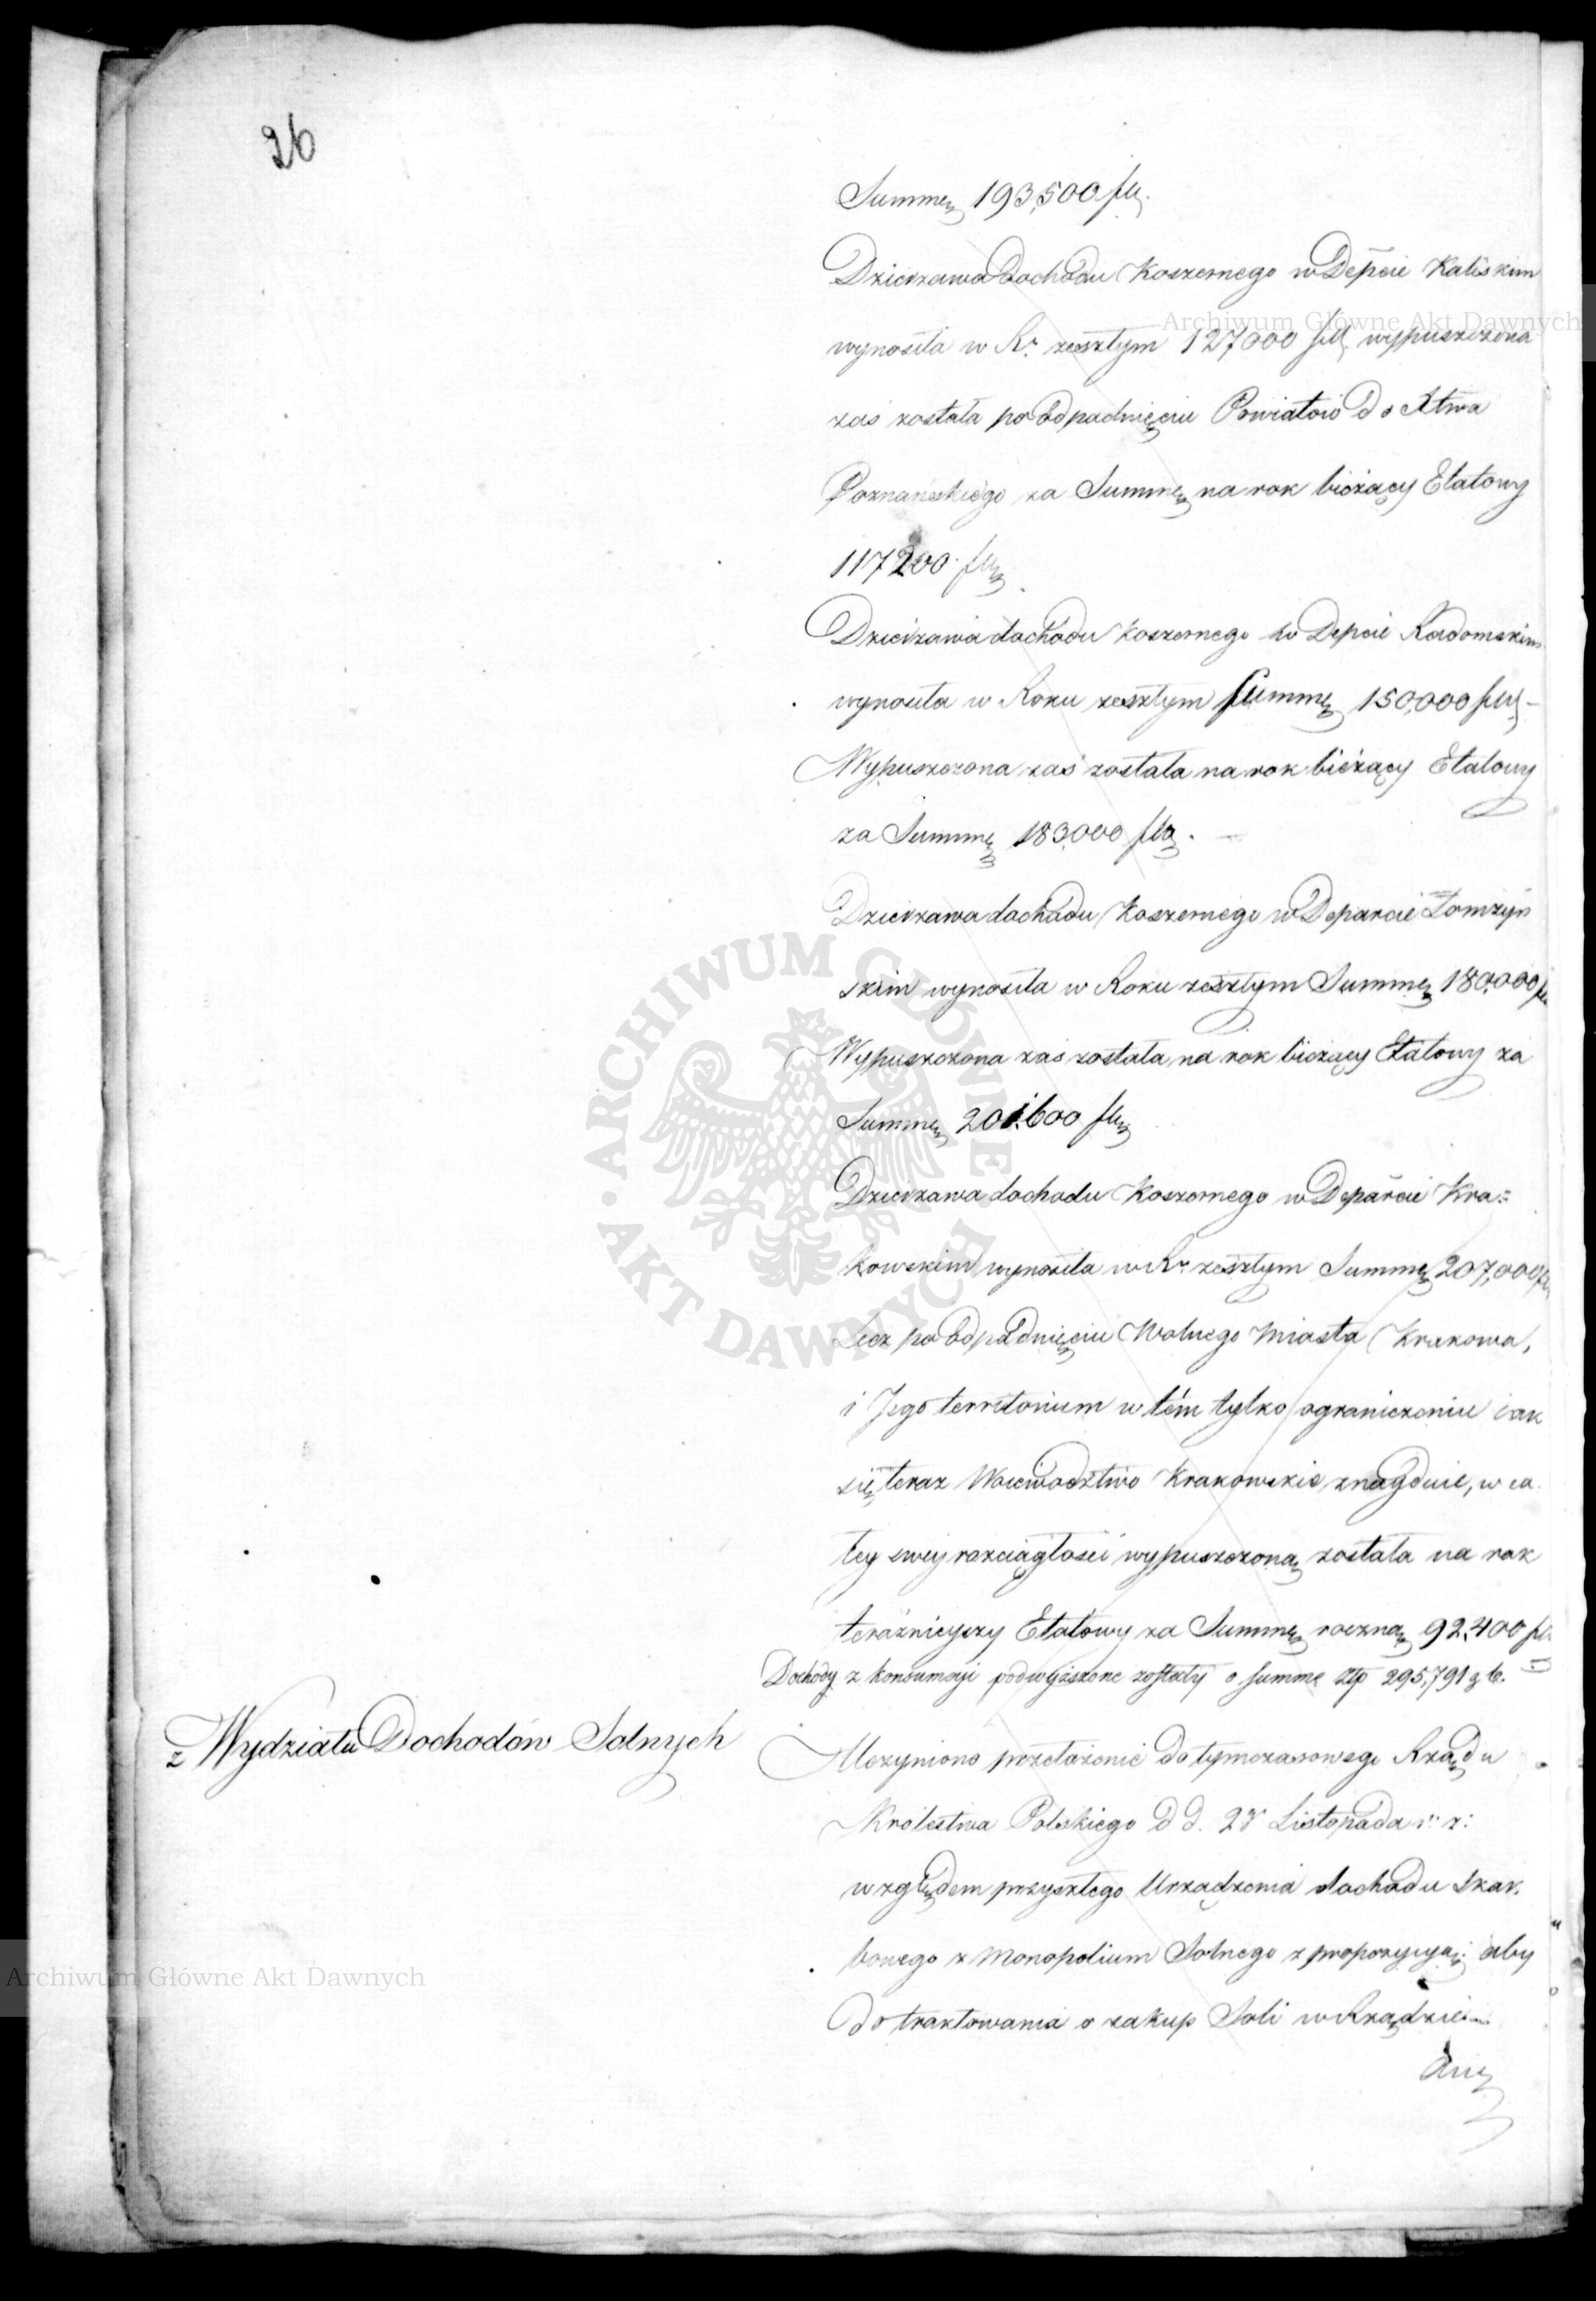 26
Summę 193,500 fl.
Dzierzawa dochodu Koszernego w Depcie Kaliskim
wynosiła w Rr. zeszłym 127000 fll. wypuszczona
zaś została po odpadnięciu Powiatow do Xtwa
Poznańskiego za Summę na rok bieżący Etatowy
117200 fl.
Dzierzawa dochodu koszernego w Depcie Radomskim
wynosiła w Roku zeszłym Summę 150,000 fl.
Wypuszczona zaś została na rok bieżący Etatowy
za Summę 183,000 fl.
Dzierzawa dochodu Koszernego w Deparcie Łomżyn
skim wynosiła w Roku zeszłym Summę 180,000 fl
Wypuszczona zaś została na rok bieżący Etatowy za
Summę 201.600 fl.
Dzierzawa dochodu Koszernego w Deparcie Kra=
kowskim wynosiła w Rr. zeszłym Summę 207,000 fl
Lecz po odpadnięciu Wolnego Miasta Krakowa,
i Jego territorium w tém tylko ograniczeniu iak
się teraz Woiewodztwo Krakowskie znayduie, w ca
łey swey rozciągłości wypuszczoną została na rok
teraźnieyszy Etatowy za Summę roczną 92,400 fl.
Dochody z konsumcji podwyższone zostały o summę Złp 295,791 g 6.
z Wydziału Dochodów Solnych
Uczyniono przełożenie do tymczasowego Rządu
Krolestwa Polskiego d d. 28 Listopada r: z:
względem przyszłego Urządzenia dochodu skar.
bowego z Monopolium Solnego z propozycyą: aby
do traktowania o zakup Soli w Rządzie
Archiwum Główne Akt Dawnych
Archiwum Główne Akt Dawnych
ARCHIWUM GŁÓWNE AKT DAWNYCH